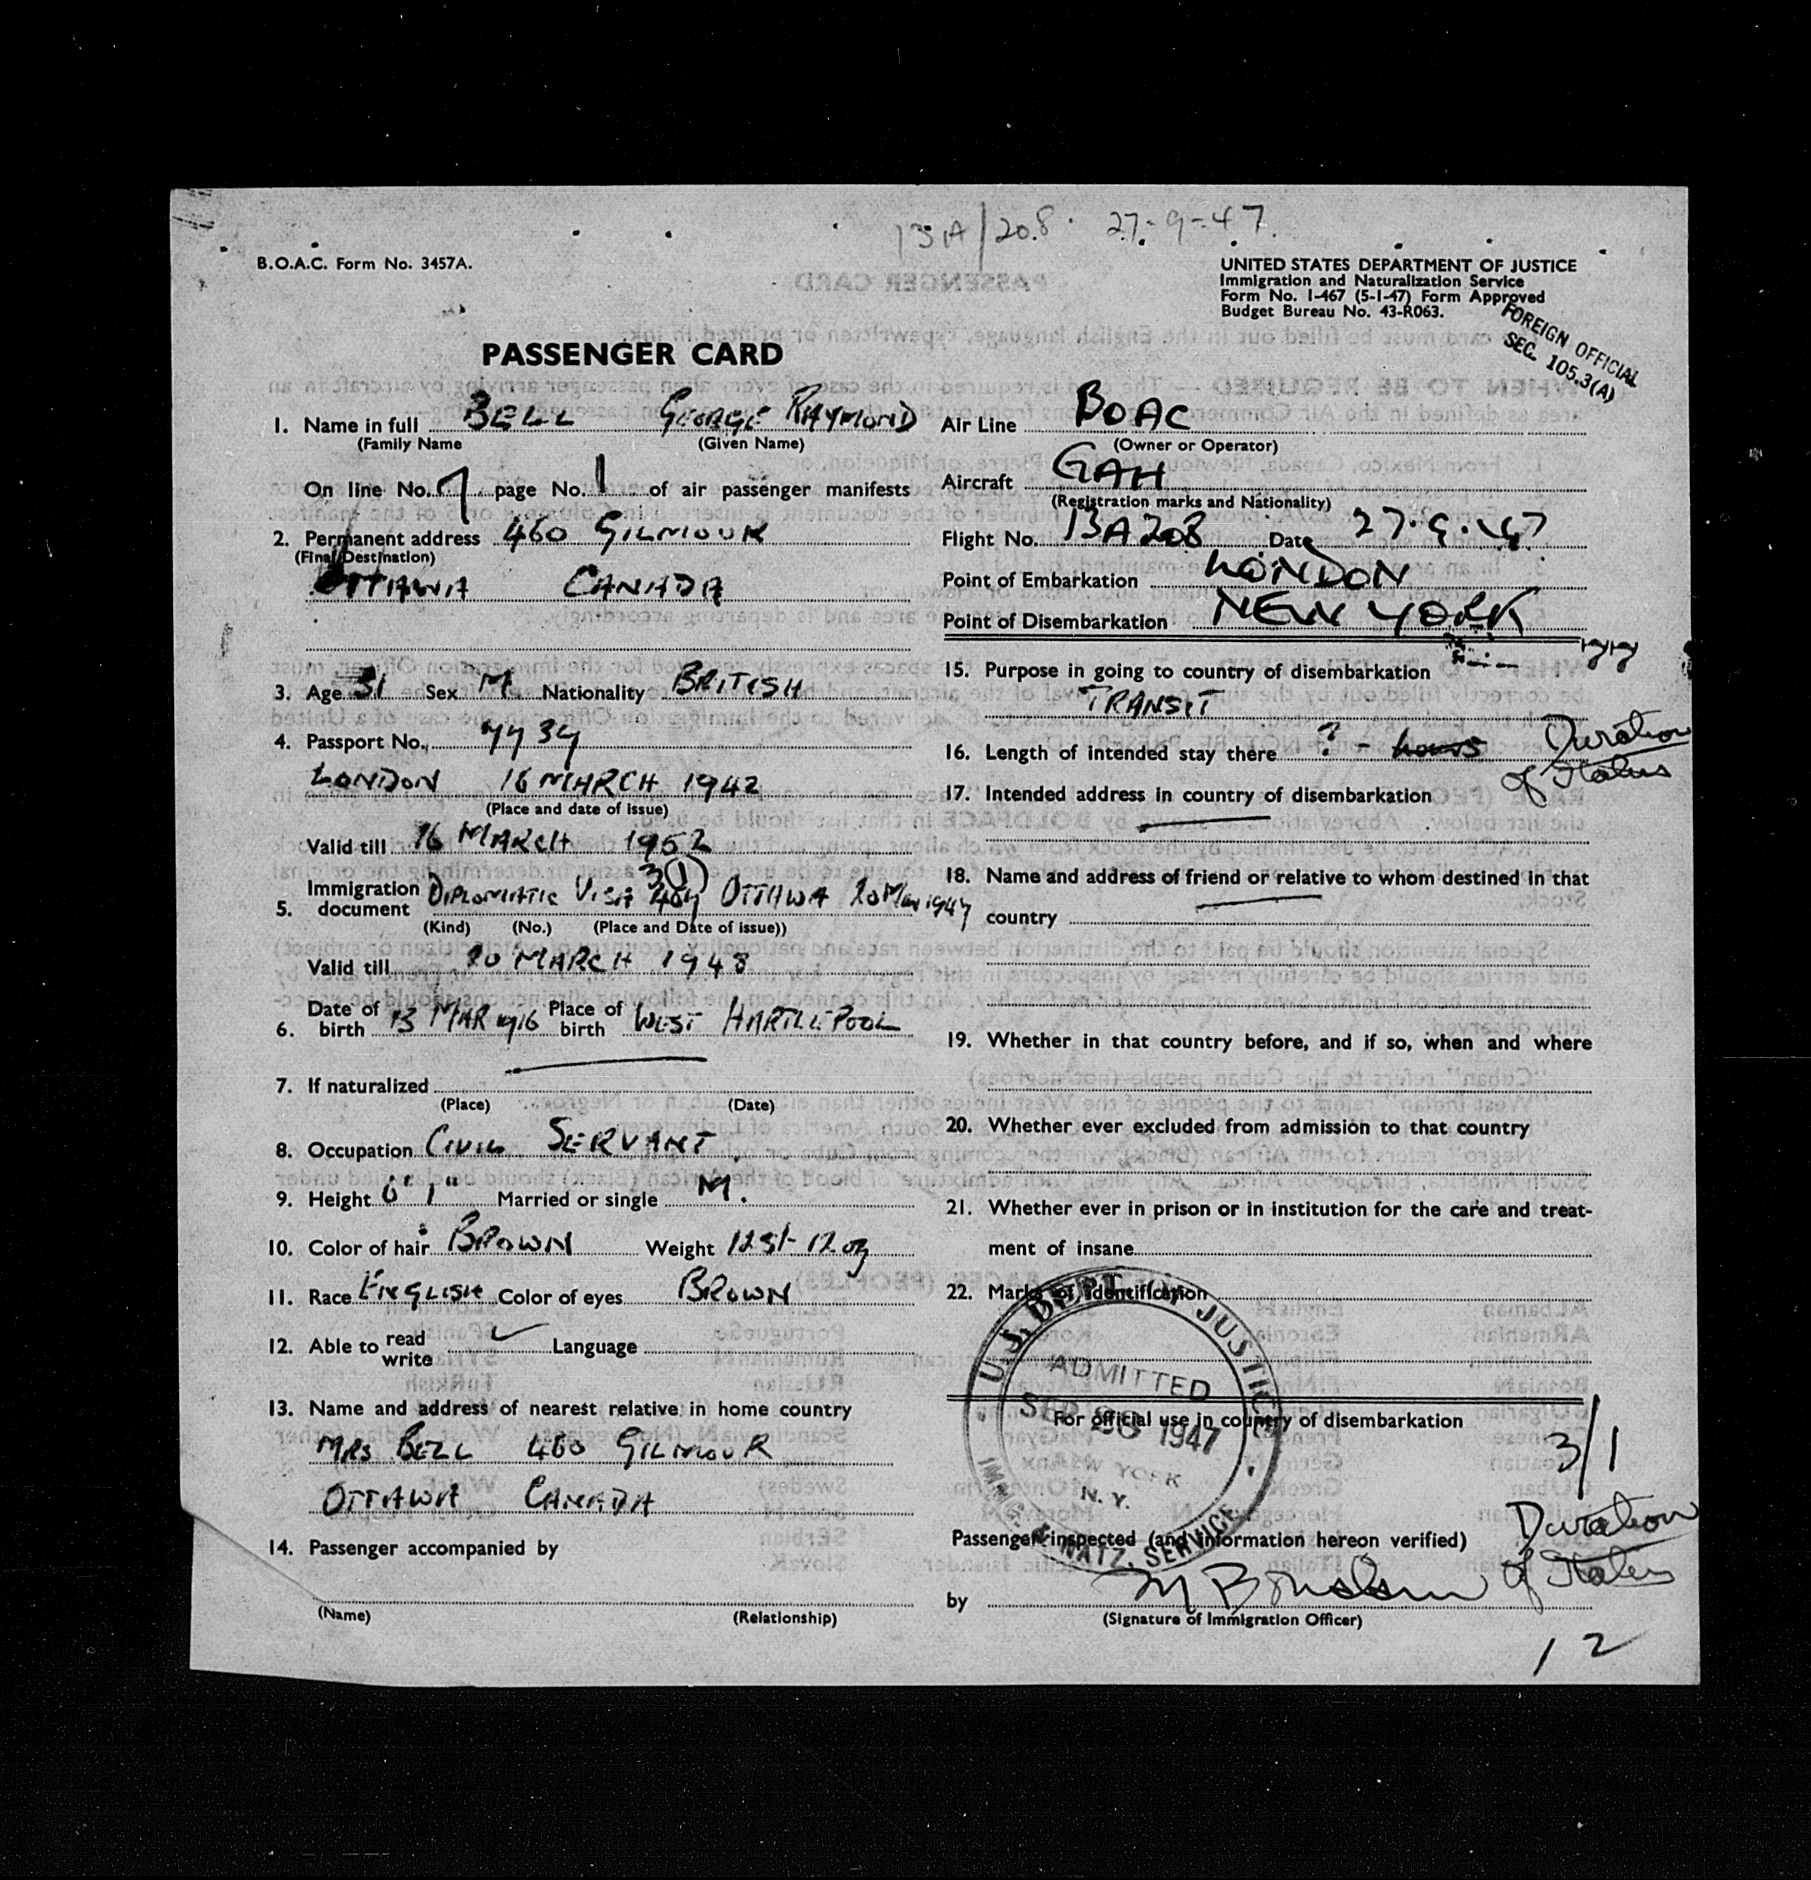 BA/208. 27-9-47.
B.O.A.C. Form No. 3457A.
UNITED STATES DEPARTMENT OF JUSTICE
Immigration and Naturalization Service
Form No. I-467 (5-1-47) Form Approved
Budget Bureau No. 43-R063.
FOREIGN OFFICIAL
SEC. 105.3(A)
PASSENGER CARD
1. Name in full BELL GEORGE RAYMOND
(Family Name (Given Name)
On line No. 7 page No. 1 of air passenger manifests
2. Permanent address 460 GILMOUR
(Final Destination)
OTTAWA CANADA
3. Age 31 Sex M. Nationality BRITISH
4. Passport No. 7737
LONDON 16 MARCH 1942
(Place and date of issue)
Valid till 16 MARCH 1952
3 (1)
5. Immigration document DIPLOMATIC VISA 407 OTTAWA 20 Mar 1947
(Kind) (No.) (Place and Date of issue))
Valid till 20 MARCH 1948
6. Date of birth 13 MAR 1916 Place of birth WEST HARTLEPOOL
7. If naturalized
(Place) (Date)
8. Occupation CIVIL SERVANT.
9. Height 6' 1" Married or single M.
10. Color of hair BROWN Weight 12 st- 12 oz
11. Race ENGLISH Color of eyes BROWN
12. Able to read write ✓ Language
13. Name and address of nearest relative in home country
MRS BELL 460 GILMOUR
OTTAWA CANADA
14. Passenger accompanied by
(Name) (Relationship)
Air Line BOAC
(Owner or Operator)
Aircraft GAH
(Registration marks and Nationality)
Flight No. BA 208 Date 27.9.47
Point of Embarkation LONDON
Point of Disembarkation NEW YORK
15. Purpose in going to country of disembarkation
TRANSIT
16. Length of intended stay there ? - hours Duration
of Status
17. Intended address in country of disembarkation
18. Name and address of friend or relative to whom destined in that
country
19. Whether in that country before, and if so, when and where
20. Whether ever excluded from admission to that country
21. Whether ever in prison or in institution for the care and treat-
ment of insane
22. Marks of identification
U.S. DEPT. OF JUSTICE
ADMITTED
SEP 28 1947
NEW YORK
N. Y.
IMMIG. & NATZ. SERVICE
For official use in country of disembarkation
3/1
Passenger inspected (and information hereon verified)
Duration
of Status
by
(Signature of Immigration Officer)
12